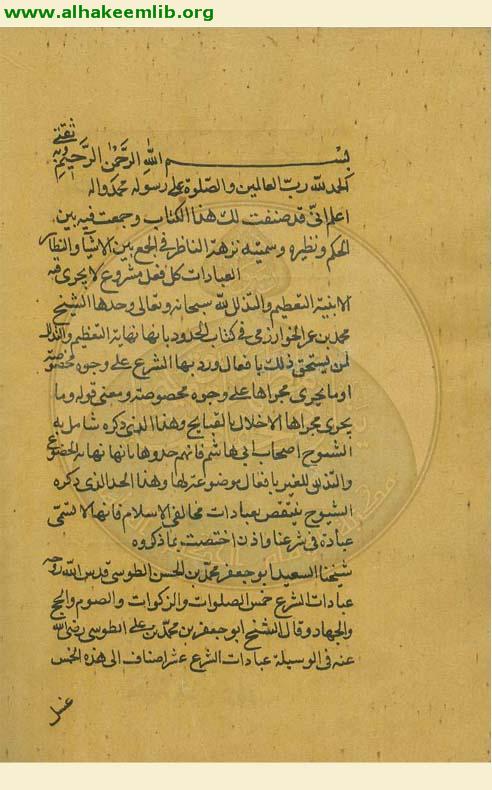 www.alhakeemlib.org
وبه ثقتي
بسم الله الرحمن الرحيم
الحمد لله رب العالمين والصلوة على رسوله محمد واله
اعلم انى قد صنفت لك هذا الكتاب وجمعت فيه بين
الحكم ونظيره وسميته نزهة الناظر فى الجمع بين الاشباه والنظاير
العبادات كل فعل مشروع لا يجرى فيه
الا بنية التعظيم والتذلل لله سبحانه وتعالى وحدها الشيخ
محمد بن عمر الخوارزمى فى كتاب الحدود بانها نهاية التعظيم والتذلل
لمن يستحق ذلك بافعال ورد بها الشرع على وجوه مخصوصة
او ما يجرى مجراها على وجوه مخصوصة ومعنى قوله وما
يجرى مجراها الاخلال بالقبايح وهذا الذى ذكره شامل به
الشيوخ اصحاب ابى هاشم فانهم حدوها بانها نهاية الخضوع
والتذلل للغير بافعال موضوعة لها وهذا الحد الذى ذكره
الشيوخ ينتقض بعبادات مخالفى الاسلام فانها لا تسمى
عبادة فى شرعنا واذن اختصت بما ذكروه
شيخنا السعيد ابو جعفر محمد بن الحسن الطوسى قدس الله روحه
عبادات الشرع خمس الصلوات والزكوات والصوم والحج
والجهاد وقال الشيخ ابو جعفر بن محمد بن على الطوسى رضى الله
عنه فى الوسيلة عبادات الشرع عشر اصناف الى هذه الخمس
غسل